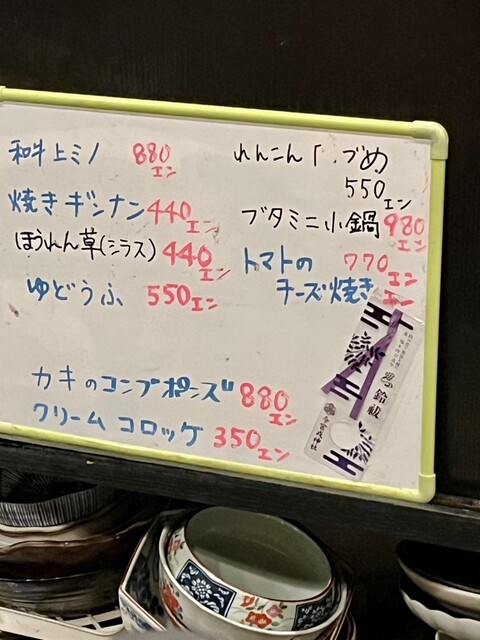 和牛上ミノ 880エン
焼きギンナン 440エン
ほうれん草(シラス) 440エン
ゆどうふ 550エン
カキのコンブポンズ 880エン
クリームコロッケ 350エン
れんこん
550エン
ブタミニ小鍋 980エン
トマトの 770エン
チーズ焼き
鈴祓
今宮戎神社